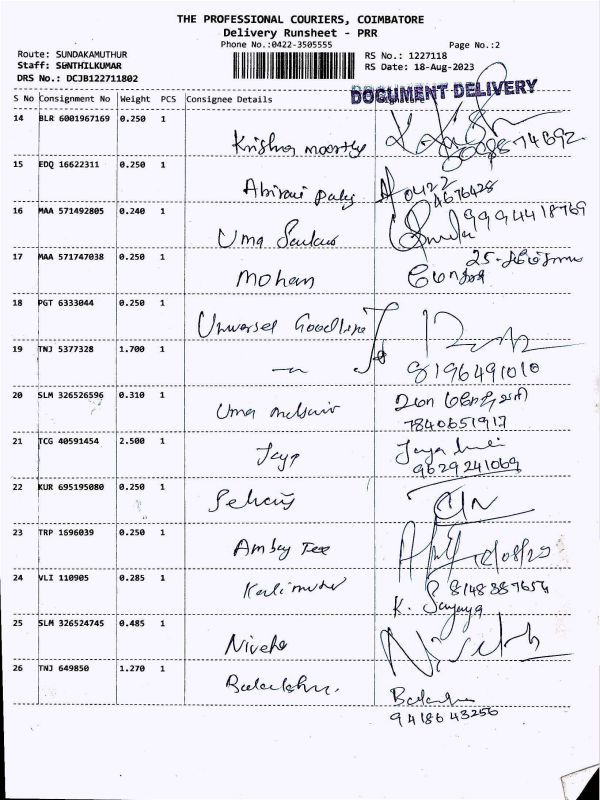 THE PROFESSIONAL COURIERS, COIMBATORE
Delivery Runsheet - PRR
Phone No.:0422-3505555
Page No.:2
Route: SUNDAKAMUTHUR
RS No.: 1227118
Staff: SENTHILKUMAR
RS Date: 18-Aug-2023
DRS No.: DCJB122711802
DOCUMENT DELIVERY
S No Consignment No Weight PCS Consignee Details
14 BLR 6001967169 0.250 1
Krishna moorthy
15 EDQ 16622311 0.250 1
Abirami
0422
4676428
16 MAA 571492805 0.240 1
Uma 9994418769
17 MAA 571747038 0.250 1
Mohan 25-
18 PGT 6333044 0.250 1
Universal Goodline
19 TNJ 5377328 1.700 1
8196491010
20 SLM 326526596 0.310 1
Uma உமா மகேஸ்வரி
7840651917
21 TCG 40591454 2.500 1
Jaya Jaya
9629241069
22 KUR 695195080 0.250 1
23 TRP 1696039 0.250 1
Ambay Tex
24 VLI 110905 0.285 1
Kalimuthu 8148887654
K. Sanjaya
25 SLM 326524745 0.485 1
Nivetha
26 TNJ 649850 1.270 1
9418643256